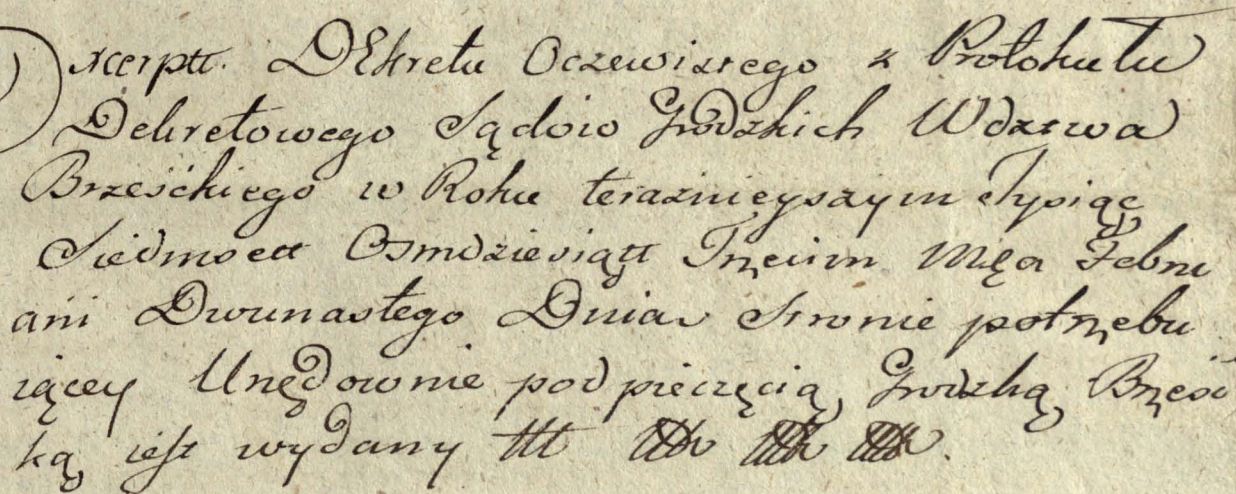 Excerptt. DEkretu Oczewistego z Protokułu
Dekretowego Sądow Grodzkich Wdztwa
Brześćkiego w Roku teraznieyszym Tysiąc
Siedmsett Osmdziesiątt Trzecim Mca Febru
arii Dwunastego Dnia Stronie potrzebu
iącey Urzędownie pod pieczęcią Grodzką Brześć
ką iest wydany ttt